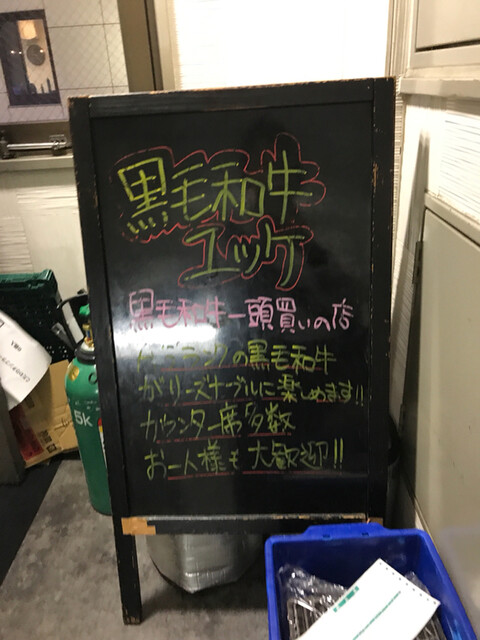 黒毛和牛
ユッケ
黒毛和牛一頭買いの店
ランクの黒毛和牛
がリーズナーブルに楽しめます!!
カウンター席多数
お一人様も大歓迎!!
5K